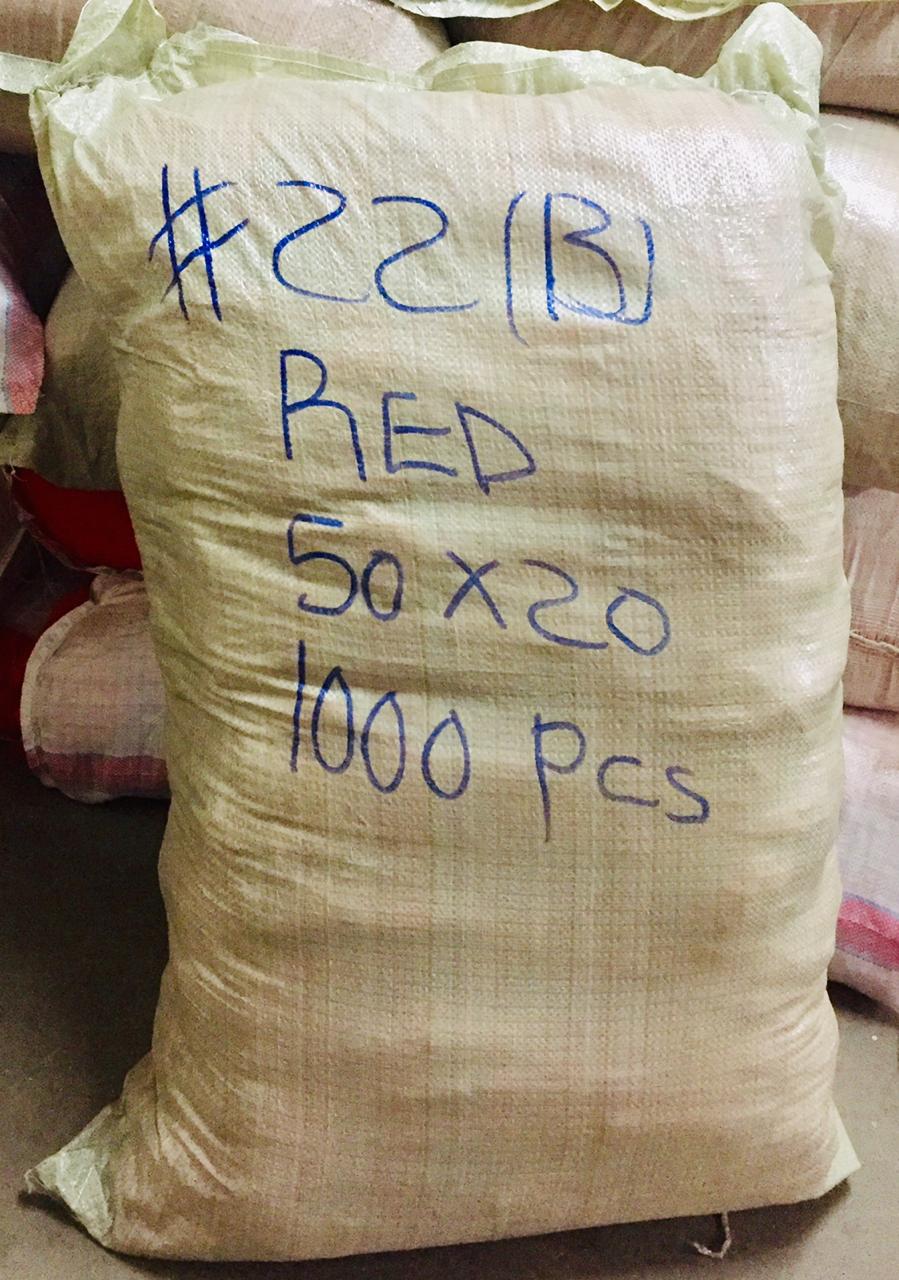 #22(B)
RED
50 x 20
1000 Pcs